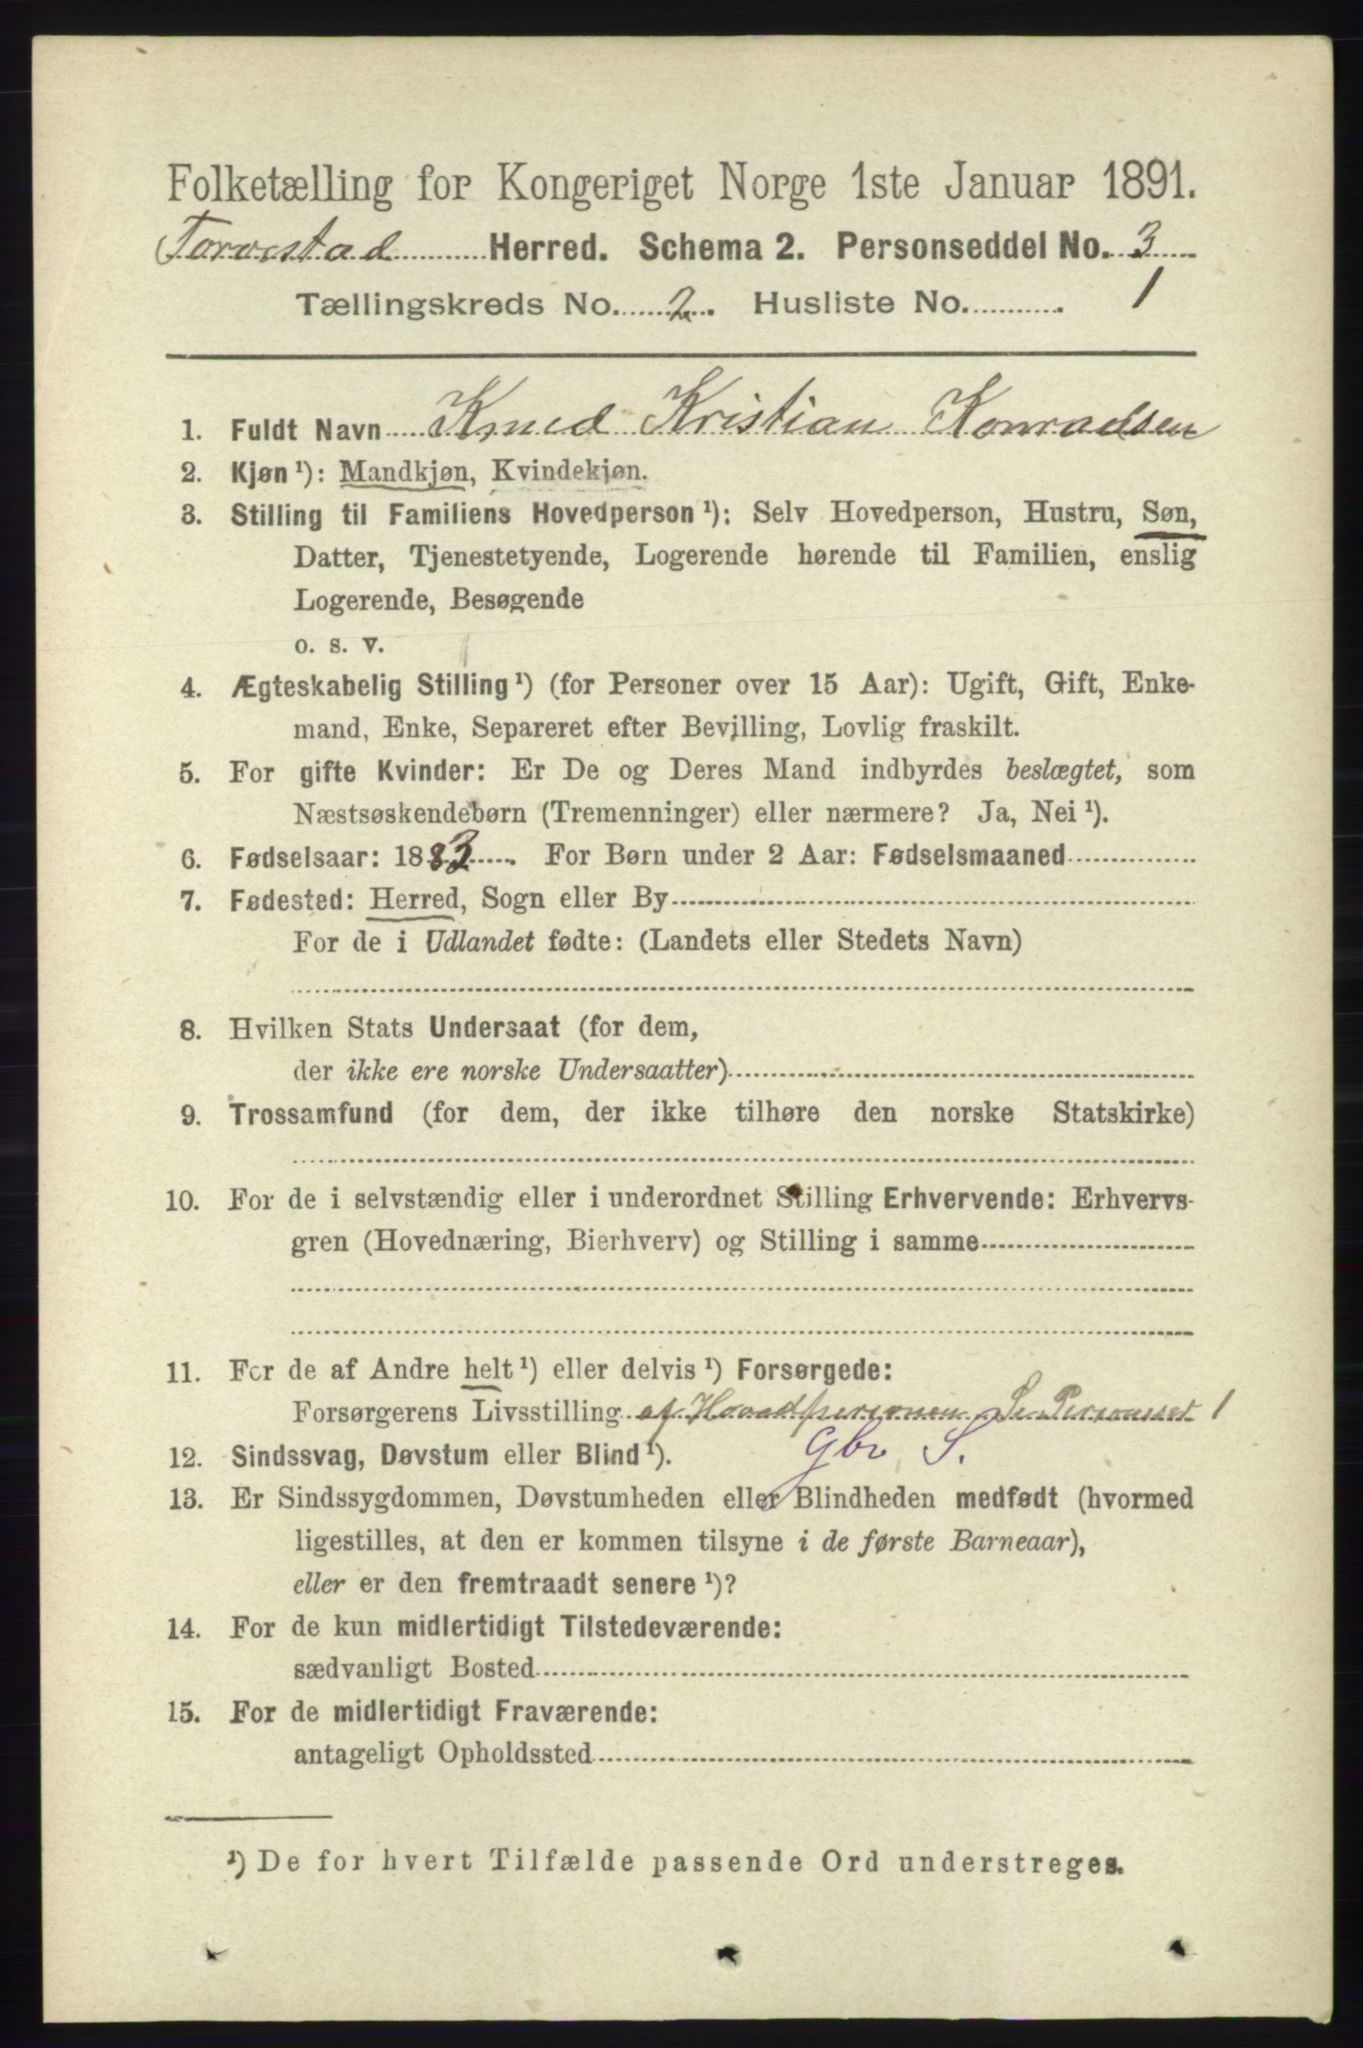 Folketælling for Kongeriget Norge 1ste Januar 1891.
Torvestad Herred. Schema 2. Personseddel No. 3
Tællingskreds No. 2. Husliste No. 1
1. Fuldt Navn Knud Kristian Konradsen
2. Kjøn ¹): Mandkjøn, Kvindekjøn.
3. Stilling til Familiens Hovedperson ¹): Selv Hovedperson, Hustru, Søn,
Datter, Tjenestetyende, Logerende hørende til Familien, enslig
Logerende, Besøgende
o. s. v.
4. Ægteskabelig Stilling ¹) (for Personer over 15 Aar): Ugift, Gift, Enke-
mand, Enke, Separeret efter Bevilling, Lovlig fraskilt.
5. For gifte Kvinder: Er De og Deres Mand indbyrdes beslægtet, som
Næstsøskendebørn (Tremenninger) eller nærmere? Ja, Nei ¹).
6. Fødselsaar: 1883. For Børn under 2 Aar: Fødselsmaaned
7. Fødested: Herred, Sogn eller By
For de i Udlandet fødte: (Landets eller Stedets Navn)
8. Hvilken Stats Undersaat (for dem,
der ikke ere norske Undersaatter)
9. Trossamfund (for dem, der ikke tilhøre den norske Statskirke)
10. For de i selvstændig eller i underordnet Stilling Erhvervende: Erhvervs-
gren (Hovednæring, Bierhverv) og Stilling i samme
11. For de af Andre helt ¹) eller delvis ¹) Forsørgede:
Forsørgerens Livsstilling af Hovedpersonen Se Personsed 1
Gbr S.
12. Sindssvag, Døvstum eller Blind ¹).
13. Er Sindssygdommen, Døvstumheden eller Blindheden medfødt (hvormed
ligestilles, at den er kommen tilsyne i de første Barneaar),
eller er den fremtraadt senere ¹)?
14. For de kun midlertidigt Tilstedeværende:
sædvanligt Bosted
15. For de midlertidigt Fraværende:
antageligt Opholdssted
¹) De for hvert Tilfælde passende Ord understreges.